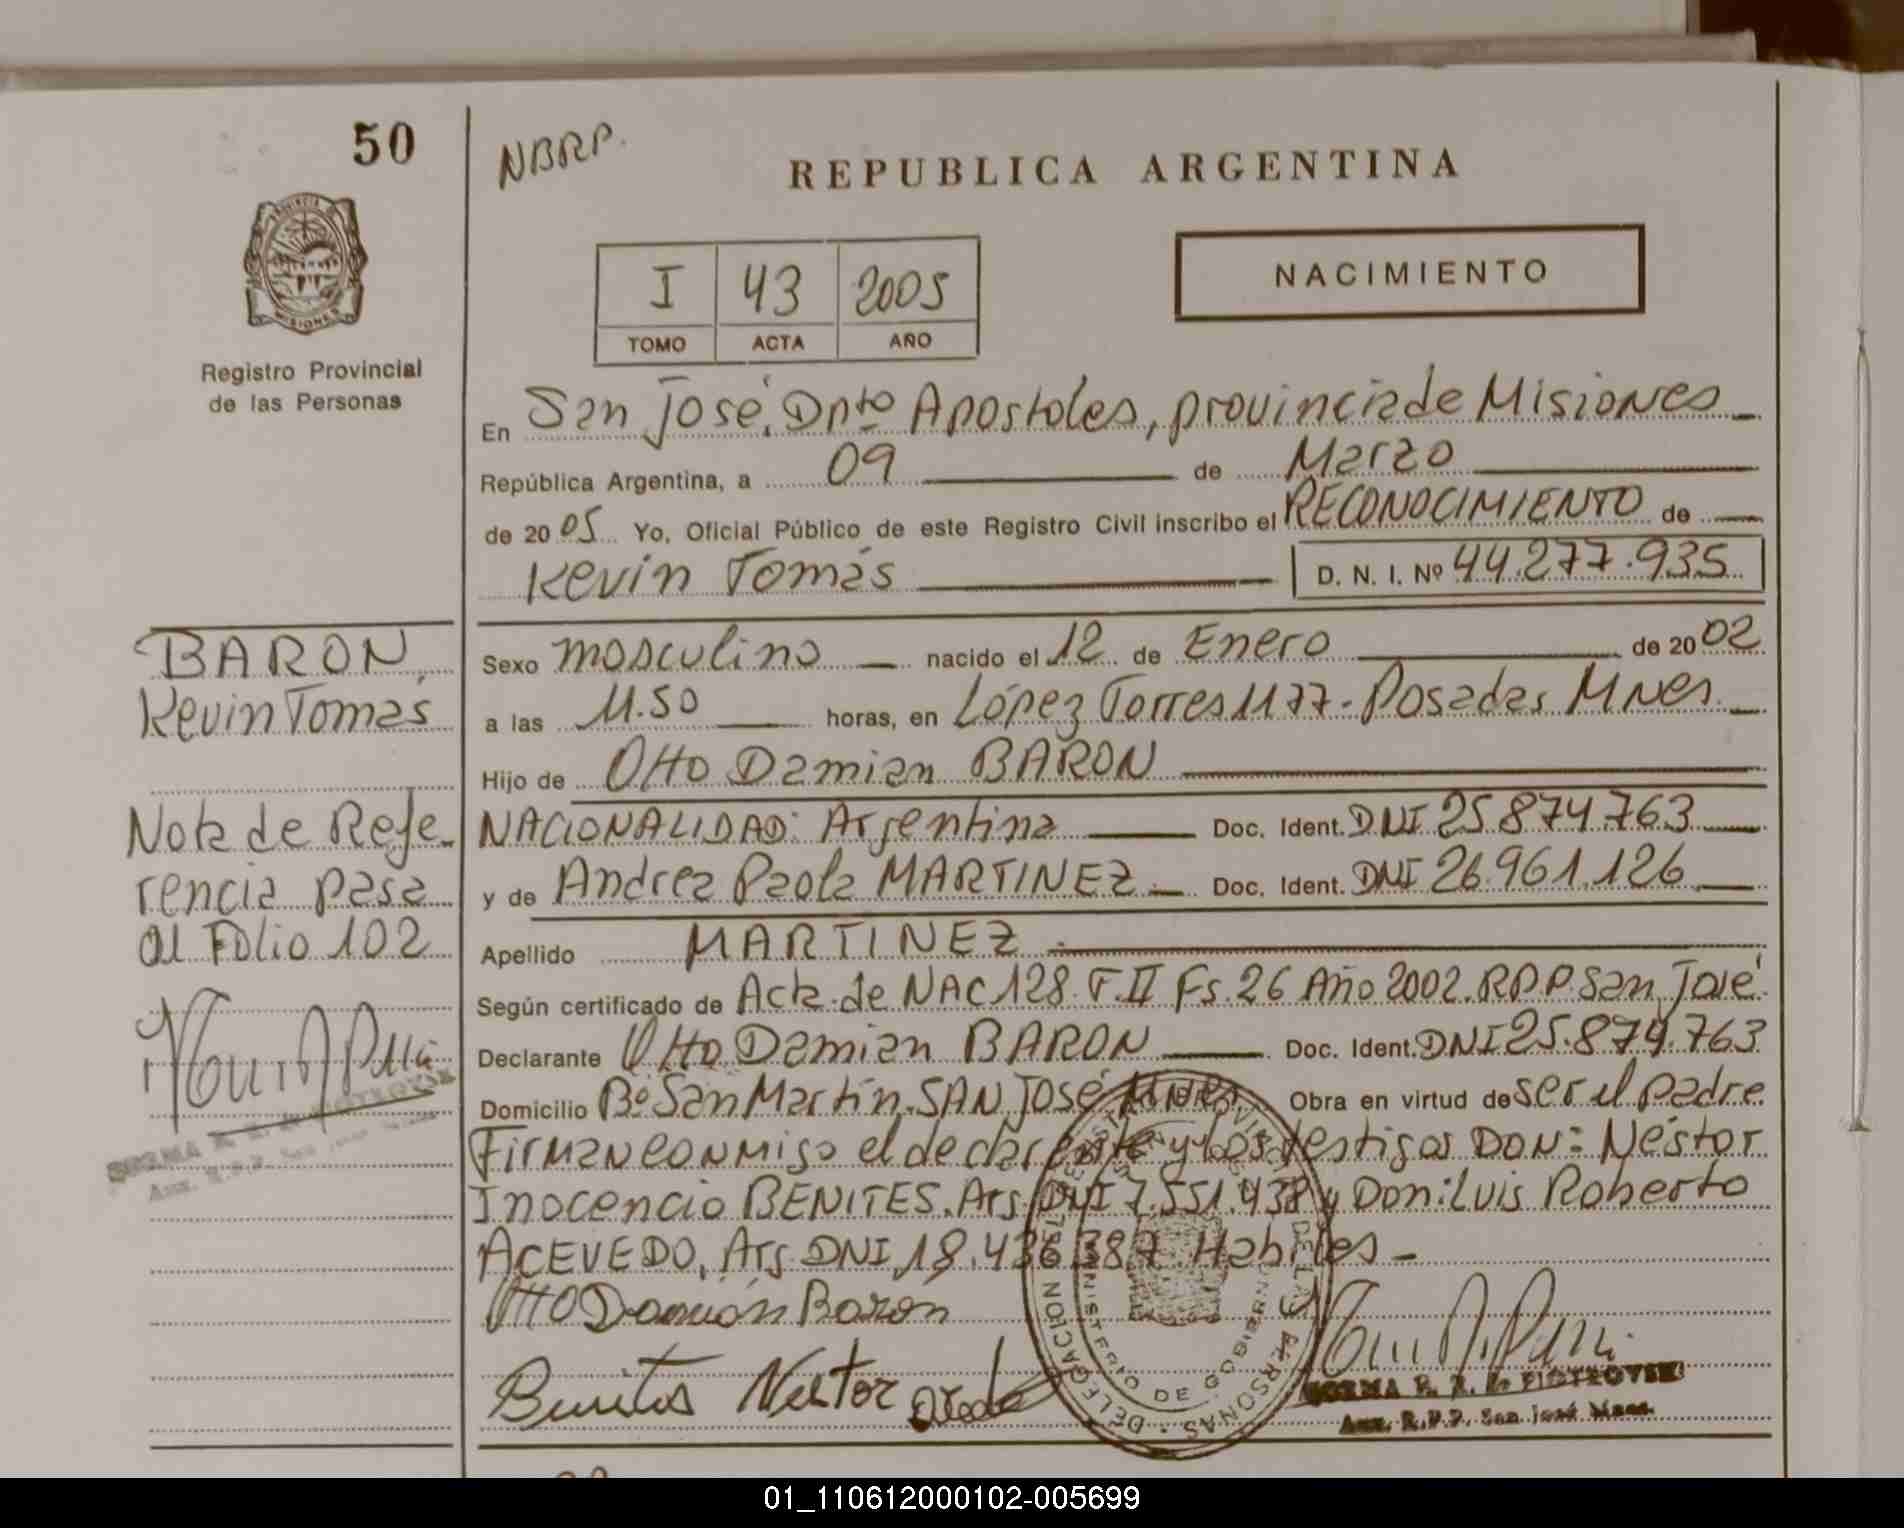 50
NBRP.
REPUBLICA ARGENTINA
I 43 2005
TOMO ACTA AÑO
NACIMIENTO
PROVINCIA DE
MISIONES
Registro Provincial
de las Personas
En San José, Dpto Apostoles, provincia de Misiones
República Argentina, a 09 de Marzo
de 2005 Yo, Oficial Público de este Registro Civil inscribo el RECONOCIMIENTO de
Kevin Tomás D. N. I. Nº 44.277.935
Sexo masculino nacido el 12 de Enero de 2002
a las 11.50 horas, en López Torres 1177 - Posadas Mnes.
Hijo de Otto Damian BARON
NACIONALIDAD: Argentina Doc. Ident. DNI 25.874.763
y de Andrea Paola MARTINEZ Doc. Ident. DNI 26.961.126
Apellido MARTINEZ
Según certificado de Acta de NAC 128. T. II Fs. 26 Año 2002. RPP. San José
Declarante Otto Damian BARON Doc. Ident. DNI 25.874.763
Domicilio Bº San Martín. SAN José Mnes Obra en virtud de ser el padre
Firman conmigo el declarante y los testigos DON: Néstor
Inocencio BENITES. Arg. DNI 7.551.438 y Don: Luis Roberto
ACEVEDO, Arg. DNI 18.436.387 Habiles -
Otto Damián Baron
Benites Nestor
BARON
Kevin Tomás
Nota de Refe-
rencia pasa
al Folio 102
NORMA R. R. de PIOTROVSKI
Aux. R.P.P. San José Mnes.
DELEGACION
DE LAS PERSONAS
MINISTERIO DE GOBIERNO
NORMA R. R. de PIOTROVSKI
Aux. R.P.P. San José Mnes.
01_110612000102-005699